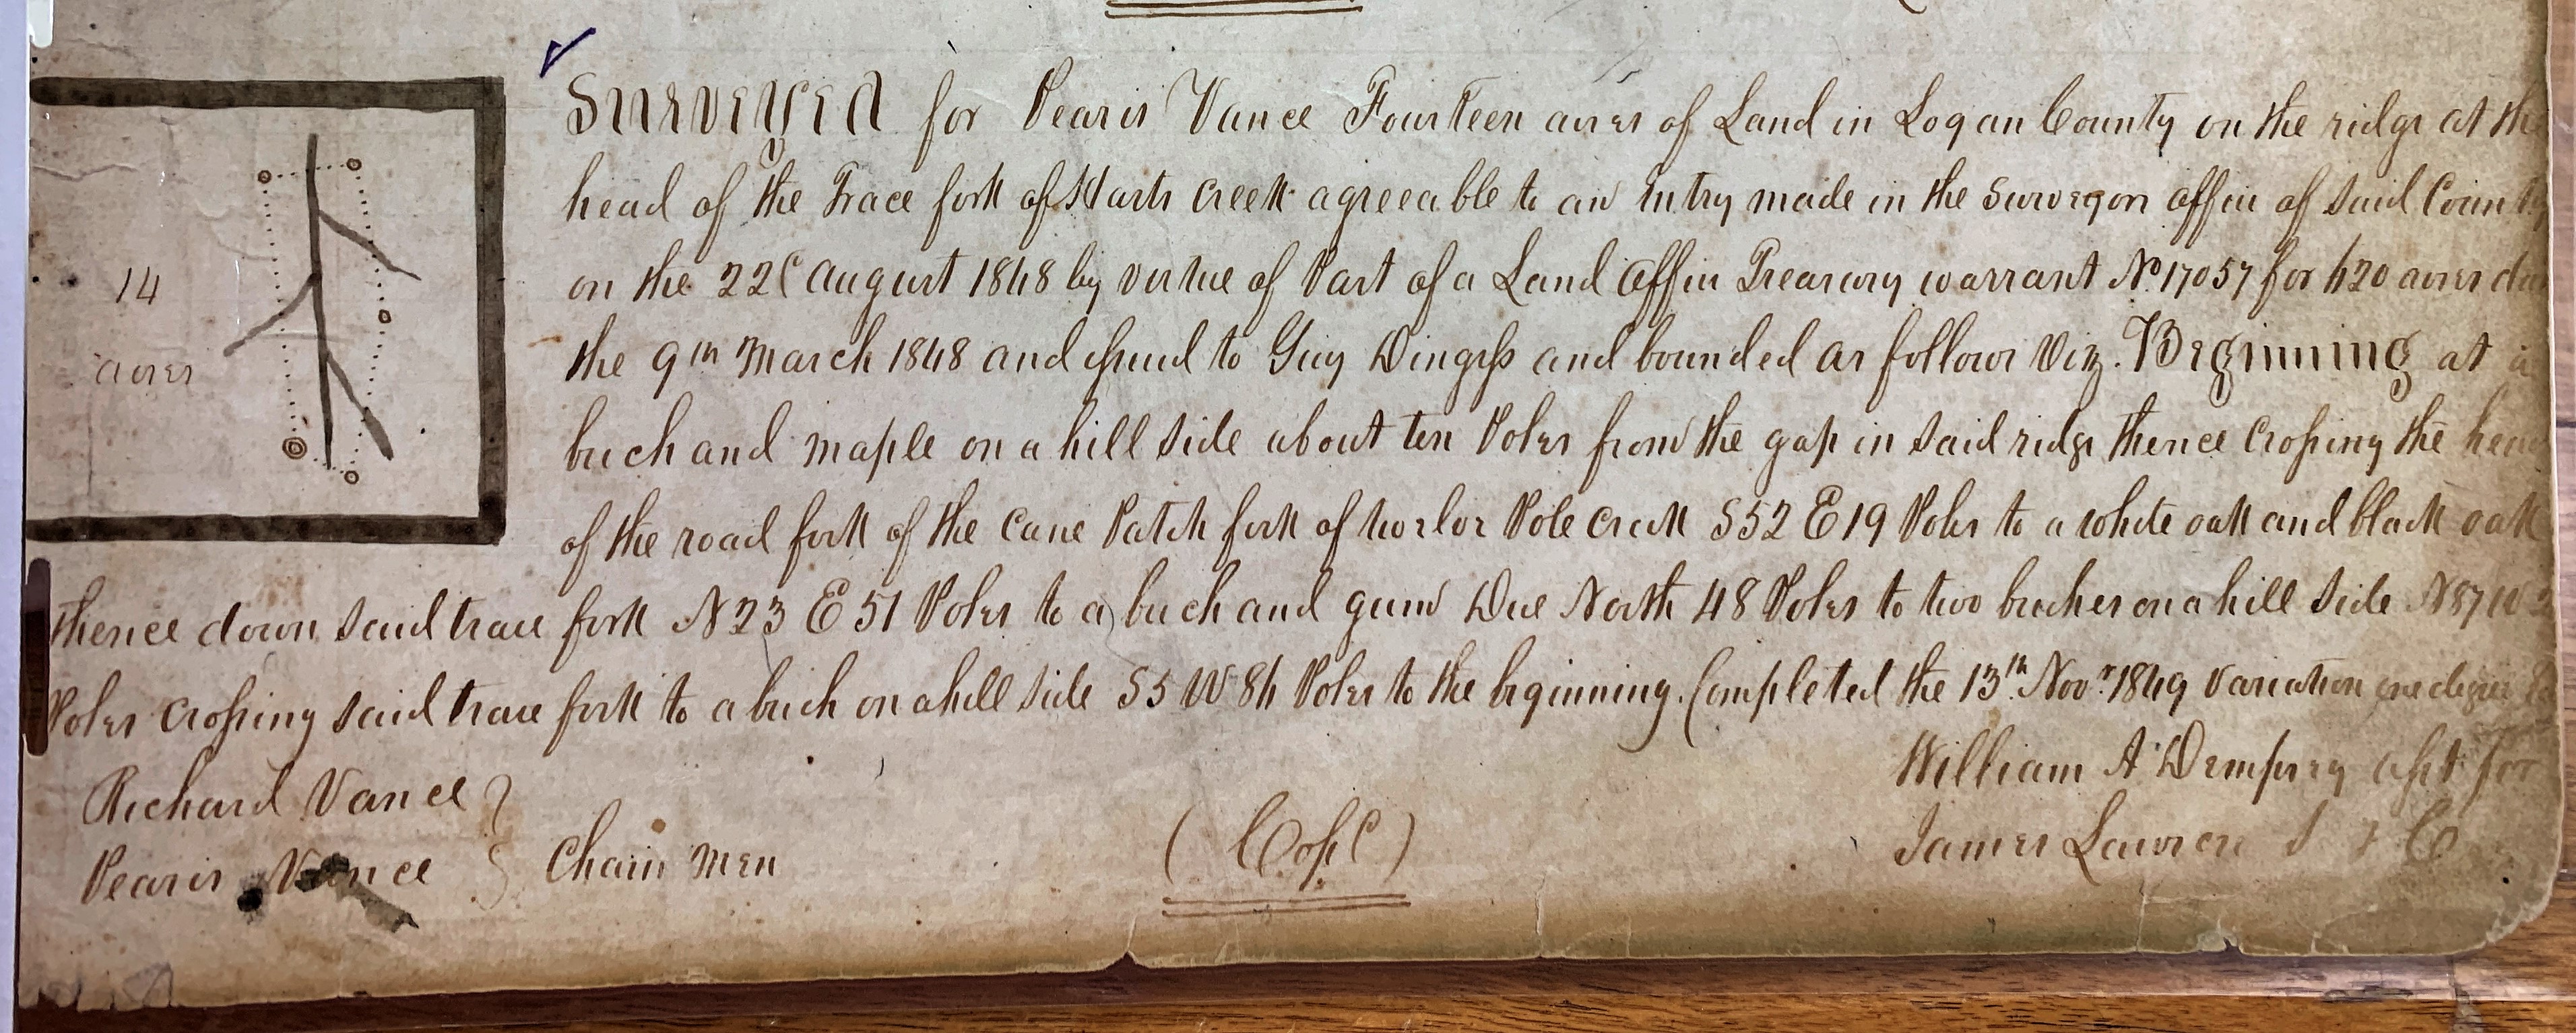 Surveyed for Pearis Vance Fourteen acres of Land in Logan County on the ridge at the
head of the Trace fork of Harts Creek agreeable to an Entry made in the Surveyors office of Said County
14
on the 22d August 1848 by vertue of Part of a Land Office Treasury warrant No 17057 for 420 acres
the 9th March 1848 and issued to Guy Dingess and bounded as follows Viz. Beginning at a
acres
buch and maple on a hill side about ten Poles from the gap in said ridge thence Crossing the head
of the road fork of the Cane Patch fork of Pole Creek S52 E 19 Poles to a white oak and black oak
thence down said trace fork N 23 E 51 Poles to a buch and gum Due North 48 Poles to two buches on a hill side N87W
Poles crossing said trace fork to a buch on a hill side S5 W 84 Poles to the beginning. Completed the 13th Novr 1849 Variation one degree
William A Dempsey asst for
Richard Vance
James Lawson
Pearis Vance
Chain Men
(Copd)